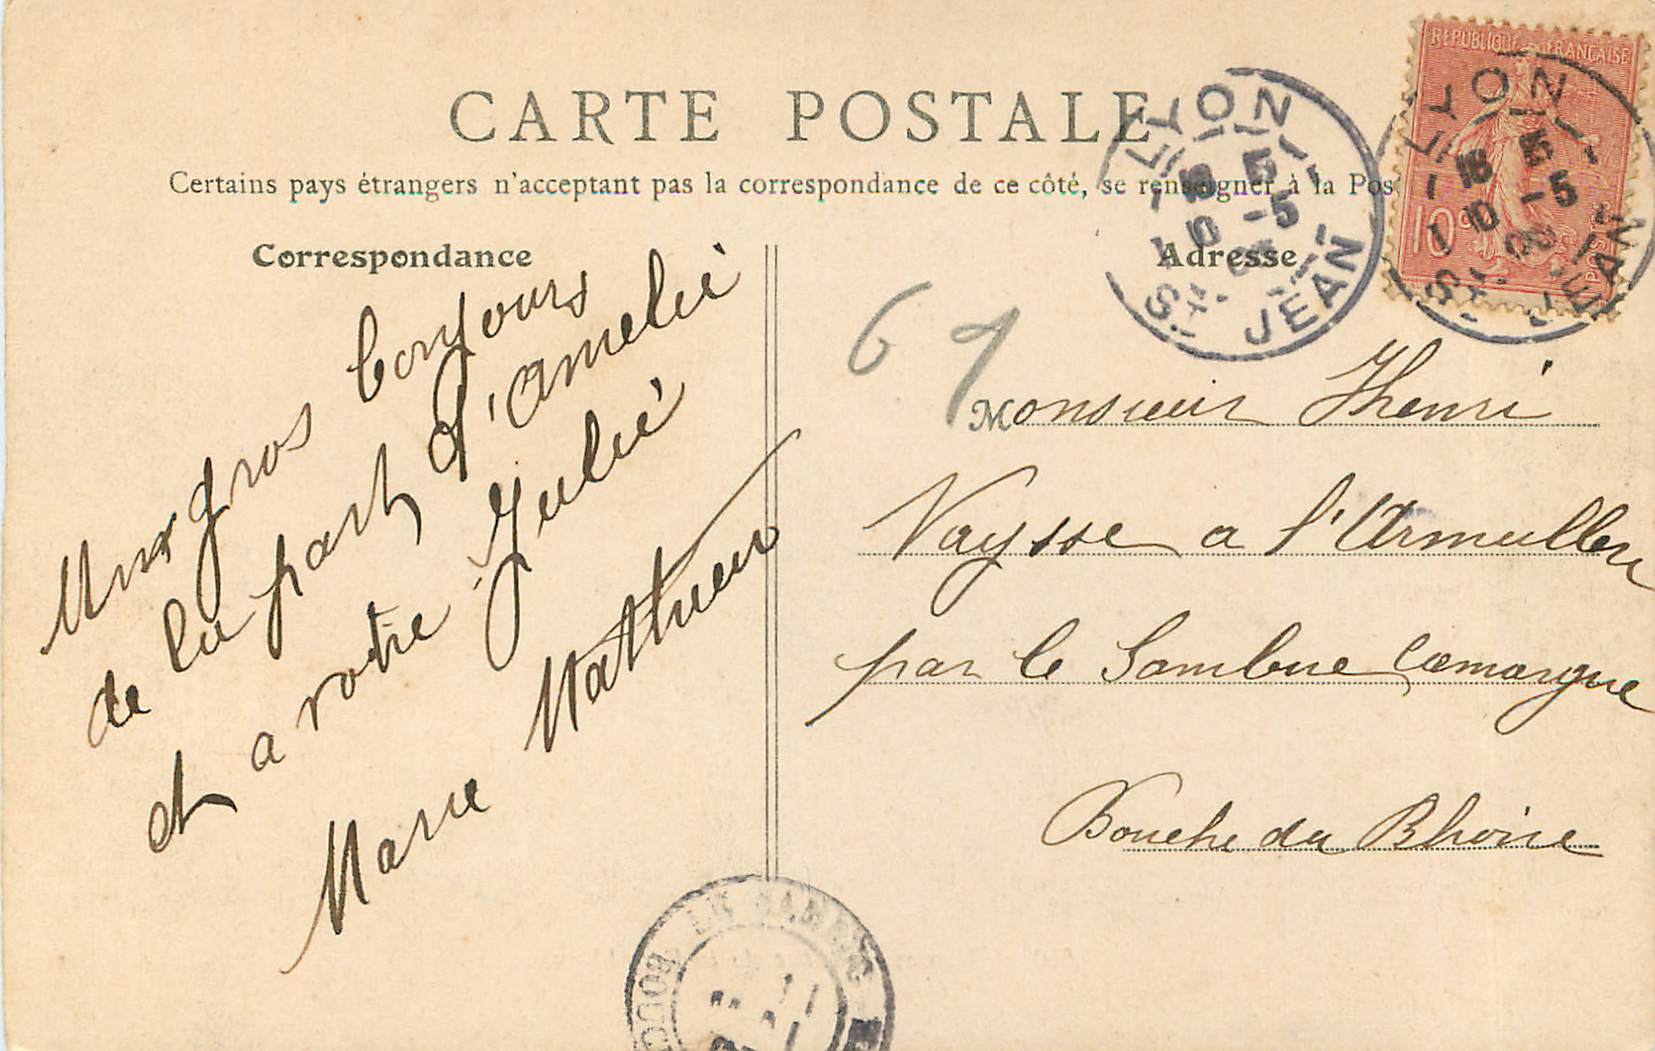 CARTE POSTALE
Certains pays étrangers n'acceptant pas la correspondance de ce côté, se renseigner à la Pos
Correspondance
Adresse
REPUBLIQUE FRANÇAISE
10c
LYON
18 15
10 -5
ST. JEAN
LYON
18 15
10 -5
06
ST. JEAN
61
gros bonjours
de la part d'Amelie
et a votre Julie
Marie Mathieu
Monsieur Henri
Vaysse a l'Armeillere
par le Sambuc Camargue
Bouche du Rhône
LE SAMBUC
BOUC
11